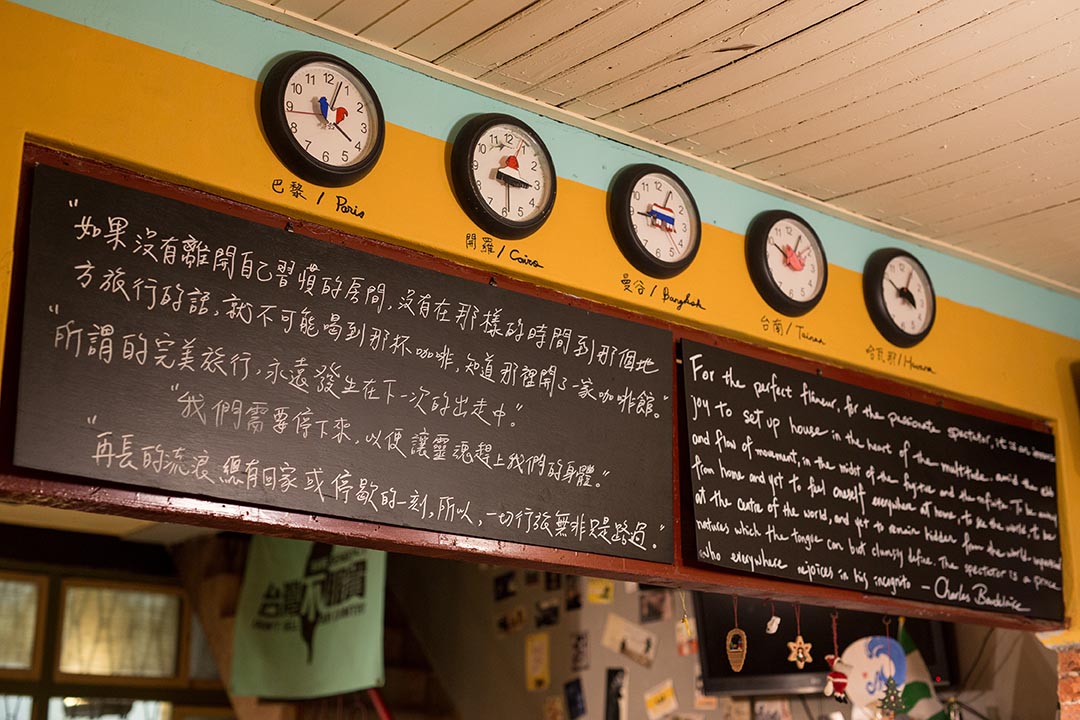 巴黎 / Paris
開羅 / Cairo
曼谷 / Bangkok
台南 / Tainan
哈瓦那 / Havana
"如果沒有離開自己習慣的房間,沒有在那樣的時間到那個地
方旅行的話,就不可能喝到那杯咖啡,知道那裡開了一家咖啡館。"
"所謂的完美旅行,永遠發生在下一次的出走中。"
"我們需要停下來,以便讓靈魂趕上我們的身體。"
"再長的流浪總有回家或停歇的一刻,所以,一切行旅無非只是路過。"
For the perfect flaneur, for the passionate spectator, it is an immense
joy to set up house in the heart of the multitude, amid the ebb
and flow of movement, in the midst of the fugitive and the infinite. To be away
from home and yet to feel oneself everywhere at home; to see the world, to be
at the centre of the world, and yet to remain hidden from the world - impartial
natures which the tongue can but clumsily define. The spectator is a prince
who everywhere rejoices in his incognito - Charles Baudelaire
台灣不